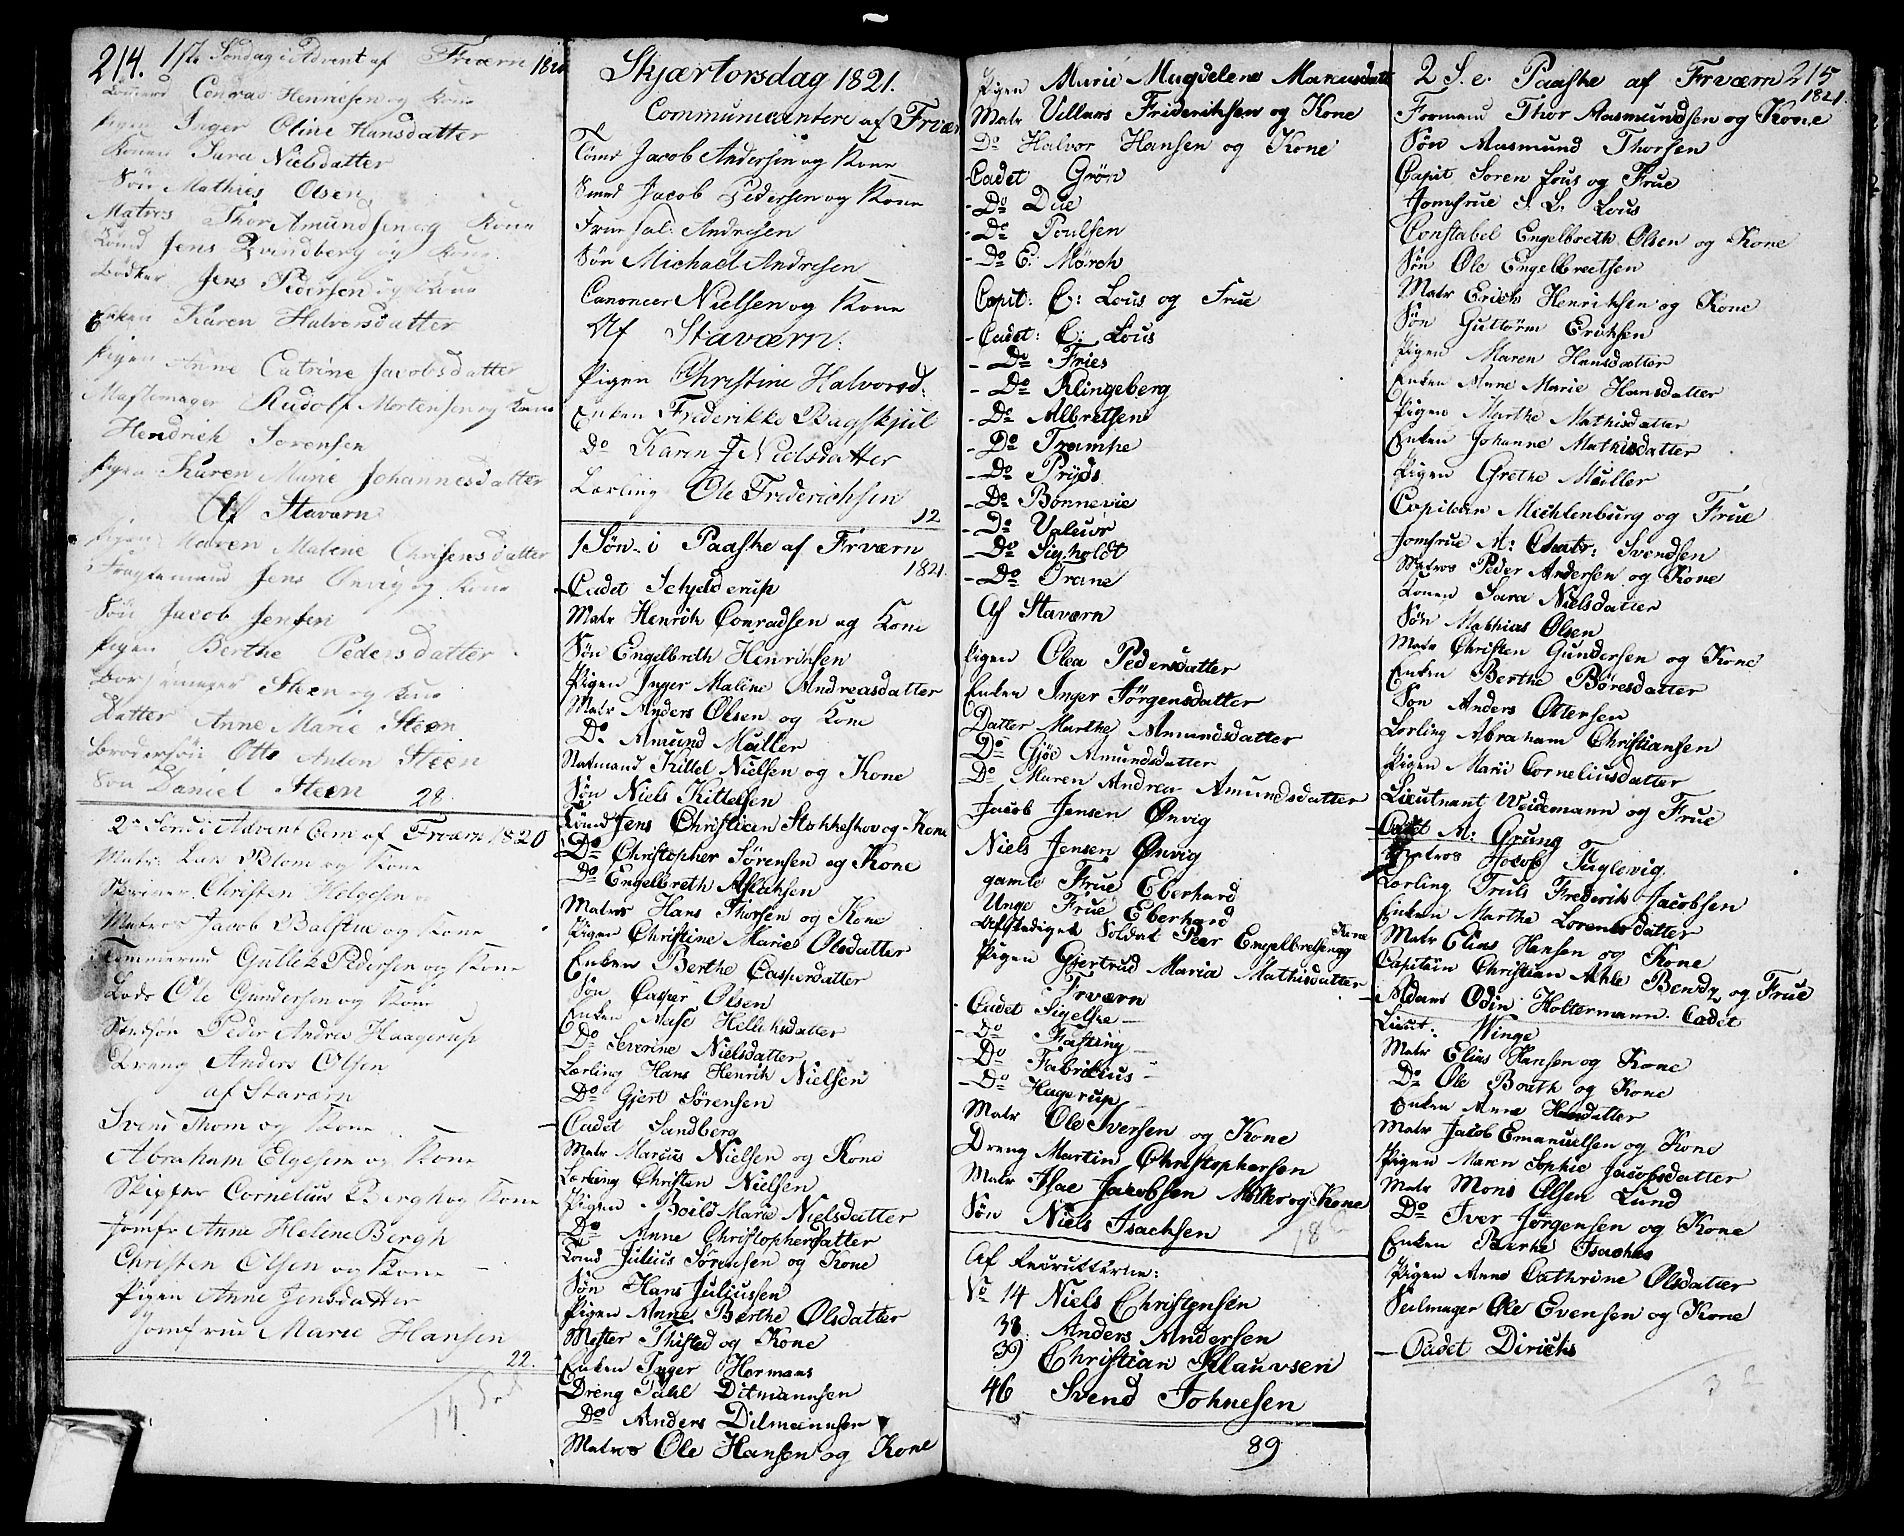 214. 1ste Søndag i Advent af Frværn 1820
Conrad Henricsen og Kone
Pigen Inger Oline Hansdatter
Konen Sara Nielsdatter
Søn Mathies Olsen
Matros Thor Amundsen og Kone
Lömd Jens Qvindberg og Kone
Bödker Jens Pedersen og Kone
Enken Karen Halvorsdatter
Pigen Anne Catrine Jacobsdatter
Mastemager Rudolf Mortensen og Kone
Hendrich Sørensen
Pigen Karen Marie Johannesdatter
Af Staværn
Pigen Maren Malene Chrisensdatter
Fragtemand Jens Ønvig og Kone
Søn Jacob Jensen
Pigen Berthe Pedersdatter
Steen og Kone
Datter Anne Marie Steen
Brodersön Otto Anton Steen
Søn Daniel Steen 28.
2den Sønd i Advent Com af Frværn 1820
Matr. Lars Blom og Kone
Christen Helgesen
Matros Jacob Balstue og Kone
Tömmermd Gullek Pedersen og Kone
Lods Ole Gundersen og Kone
Peder Andres Haagerup
Dreng Anders Olsen
af Staværn
Svend Thom og Kone
Abraham Elgesem og Kone
Skipper Cornelius Bergh og Kone
Jomfr Anne Helene Bergh
Christen Olsen og Kone
Pigen Anne Jensdatter
Jomfrue Marie Hansen
22.
14
Skjærtorsdag 1821.
Communicantere af Frværn
Töms Jacob Andersen og Kone
Smed Jacob Pedersen og Kone
Frue sal. Andresen
Søn Michael Andresen
Canoneer Nielsen og Kone
Af Staværn:
Pigen Christine Halvorsd:
Enken Frederikke Bagskjul
Do Karen Nielsdatter
Lærling Ole Friderichsen
12
1 Søn. i Paaske af Frværn
1821.
Cadet Schjelderup
Matr Henrik Conradsen og Kone
Søn Engelbreth Henriksen
Pigen Inger Maline Andreasdatter
Matr Anders Olsen og Kone
Do Amund Müller
Kittel Nielsen og Kone
Søn Niels Kittelsen
Lömd Jens Christian Stokkeskov og Kone
Do Christopher Sørensen og Kone
Do Engelbreth Aslaksen
Matros Hans Thorsen og Kone
Pigen Christine Marie Olsdatter
Enken Berthe Caspersdatter
Søn Casper Olsen
Enken Aase Helliksdatter
Do Severine Nielsdatter
Lærling Hans Henrik Nielsen
Do Gjert Sørensen
Cadet Sandberg
Matr Marcus Nielsen og Kone
Lærling Christen Nielsen
Pigen Boild Marie Nielsdatter
Do Anne Christophersdatter
Lömd Julius Sørensen og Kone
Søn Hans Juliussen
Pigen Anne Berthe Olsdatter
Mester Thisted og Kone
Enken Inger Hermans
Dreng Pahl Ditmannsen
Do Anders Ditmannsen
Matros Ole Hansen og Kone
Pigen Marie Magdelene Marcusdatt
Matr Villars Frideriksen og Kone
Do Halvor Hansen og Kone
Cadet Grøn
Do Due
Do Poulsen
Do E: Mörch
Capit: C: Lous og Frue
Cadet: C: Lous
Do Fries
Do Klingeberg
Do Albretsen
Do Trampe
Do Pryds
Do Bonnevie
Do Valeur
Do Sigholdt
Do Trane
Af Staværn
Pigen Olea Pedersdatter
Enken Inger Jörgensdatter
Datter Marthe Amundsdatter
Do Gjøe Amundsdatter
Do Maren Andrea Amundsdatter
Jacob Jensen Ønvig
Niels Jensen Ønvig
gamle Frue Eberhard
Unge Frue Eberhard
Afskediget Soldat Peer Engelbretsen og Kone
Pigen Gjertrud Maria Mathisdatter
Frværn
Cadet Sigelske
Do Fasting
Do Fabricius
Do Hagerup
Matr Ole Iversen og Kone
Dreng Martin Christophersen
Matr Isac Jacobsen og Kone
Søn Niels Isachsen
Af Recrutterne:
No 14 Niels Christensen
38. Anders Andersen
39 Christian Klauvsen
46 Svend Johnesen
89
2 S. e. Paaske af Frværn 215
1821.
Formand Thor Aasmundsen og Kone
Søn Aasmund Thorsen
Capit Soren Lous og Frue
Jomfrue S. L. Lous
Constabel Engelbreth Olsen og Kone
Søn Ole Engelbretsen
Matr Erich Henriksen og Kone
Søn Guttorm Eriksen
Pigen Maren Hansdatter
Enken Anne Marie Hansdatter
Pigen Marthe Mathisdatter
Enken Johanne Mathisdatter
Pigen Grethe Müller
Capitain Mechlenburg og Frue
Jomfrue A: Chatr: Svendsen
Matros Peder Andersen og Kone
Konen Sara Nielsdatter
Søn Mathias Olsen
Matr Christen Gundersen og Kone
Enken Berthe Böresdatter
Søn Anders Ottersen
Lærling Abraham Christiansen
Pigen Marie Corneliusdatter
Lieutnant Weidemann og Frue
Cadet M: Grung
Matros Jacob Fuglevig
Lærling Truls Frederik Jacobsen
Enken Marthe Lorentsdatter
Matr Elias Hansen og Kone
Capitain Christian Ahle Bendz og Frue
Adam Odin Holtermann Cadet
Lieut: Winge
Matr Elias Hansen og Kone
Do Ole Bouth og Kone
Enken Anne Hansdatter
Matr Jacob Emanuelsen og Kone
Pigen Maren Sophie Jacobsdatter
Matr Mons Olsen Lund
Do Iver Jørgensen og Kone
Enken Berthe Isachs
Pigen Anne Cathrine Olsdatter
Seilmager Ole Evensen og Kone
Cadet Dirichs